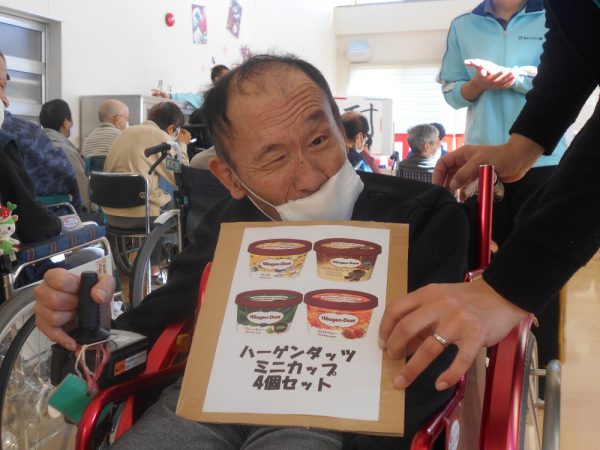 Häagen-Dazs
Häagen-Dazs
Häagen-Dazs
Häagen-Dazs
ハーゲンダッツ
ミニカップ
4個セット